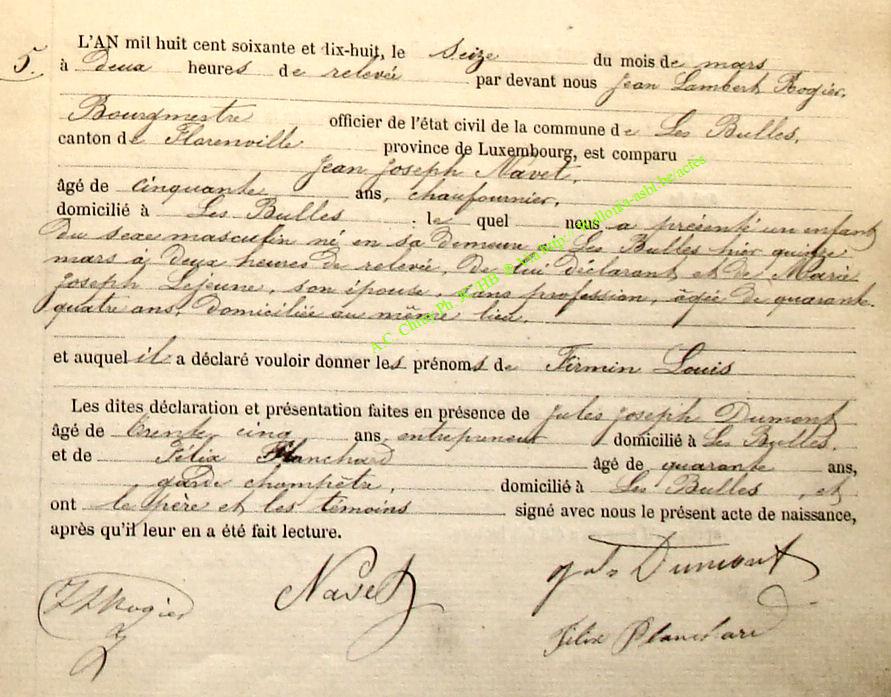 5.
L'AN mil huit cent soixante et dix-huit, le Seize du mois de mars
à Deux heures de relevée par devant nous Jean Lambert Rogier,
Bourgmestre officier de l'état civil de la commune de Les Bulles,
canton de Florenville province de Luxembourg, est comparu
Jean Joseph Navet,
âgé de cinquante ans, chaufournier,
domicilié à Les Bulles : le quel nous a présenté un enfant
du sexe masculin né en sa demeure à Les Bulles hier quinze
mars à deux heures de relevée, de lui déclarant et de Marie
Joseph Lejeune, son épouse, sans profession, âgée de quarante-
quatre ans, domiciliée au même lieu.
et auquel il a déclaré vouloir donner les prénoms de Firmin Louis
Les dites déclaration et présentation faites en présence de Jules Joseph Dumont
âgé de trente cinq ans, entrepreneur domicilié à Les Bulles,
et de Félix Planchard âgé de quarante ans,
garde champêtre, domicilié à Les Bulles, et
ont le père et les témoins signé avec nous le présent acte de naissance,
après qu'il leur en a été fait lecture.
JLRogier Navet Jules Dumont
Félix Planchard
A.C. Chiny Ph.